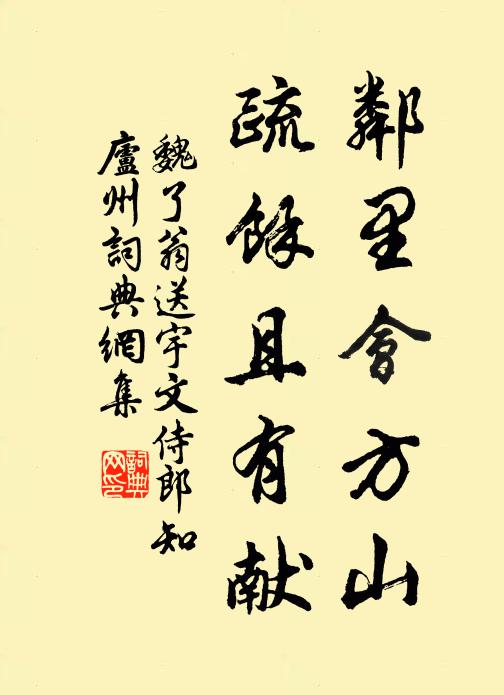 鄰里會方山
疏餘且有献
魏了翁送宇文侍郎知
廬州詞典網集
詞典网印